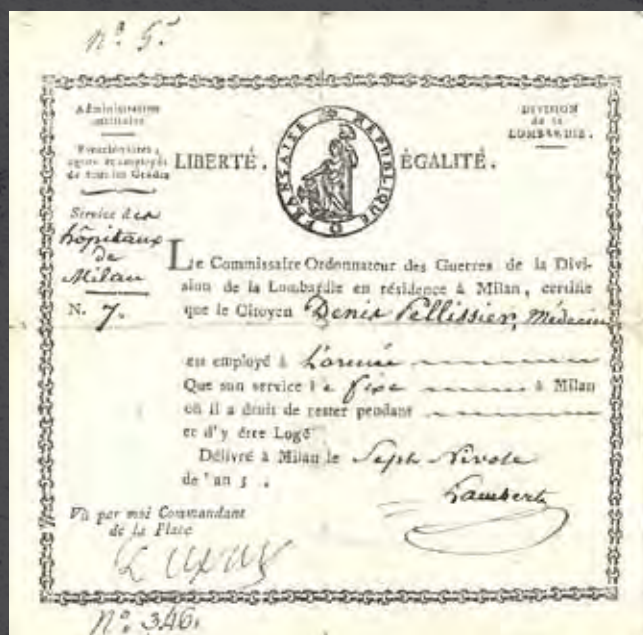 nº. 5.
Administration
militaire
Fonctionnaires,
agens et employés
de tous les Grades
Service des
hôpitaux
de
Milan
N. 7.
DIVISION
de la
LOMBARDIE.
LIBERTÉ.
RÉPUBLIQUE FRANÇAISE
ÉGALITÉ.
Le Commissaire Ordonnateur des Guerres de la Divi-
sion de la Lombardie en résidence à Milan, certifie
que le Citoyen Denis Pellissier, Médecin
est employé à L'armée
Que son service le fixe à Milan
où il a droit de rester pendant
et d'y être Logé
Délivré à Milan le Sept Nivose
de l'an 5.
Lambert
Vû par moi Commandant
de la Place
Nº. 346.